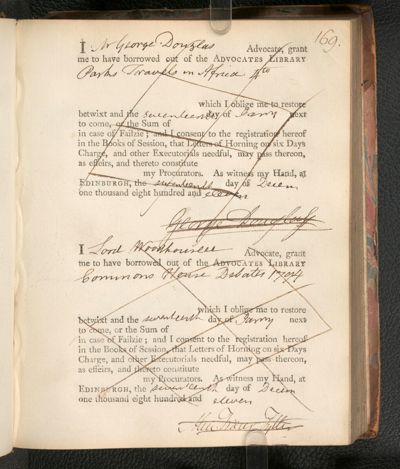 169.
I Mr George Douglas Advocate, grant
me to have borrowed out of the ADVOCATES LIBRARY
Parks Travels in Africa 4to
which I oblige me to restore
betwixt and the seventeenth day of Janry next
to come, or the Sum of
in case of Failzie; and I consent to the registration hereof
in the Books of Session, that Letters of Horning on six Days
Charge, and other Executorials needful, may pass thereon,
as effeirs, and thereto constitute
my Procurators. As witness my Hand, at
EDINBURGH, the seventeenth day of Decem
one thousand eight hundred and eleven
George Douglas
I Lord Woodhouselee Advocate, grant
me to have borrowed out of the ADVOCATES LIBRARY
Commons House Debates 1794
which I oblige me to restore
betwixt and the seventeenth day of Janry next
to come, or the Sum of
in case of Failzie; and I consent to the registration hereof
in the Books of Session, that Letters of Horning on six Days
Charge, and other Executorials needful, may pass thereon,
as effeirs, and thereto constitute
my Procurators. As witness my Hand, at
EDINBURGH, the seventeenth day of Decem
one thousand eight hundred and
eleven
Fraser Tytler